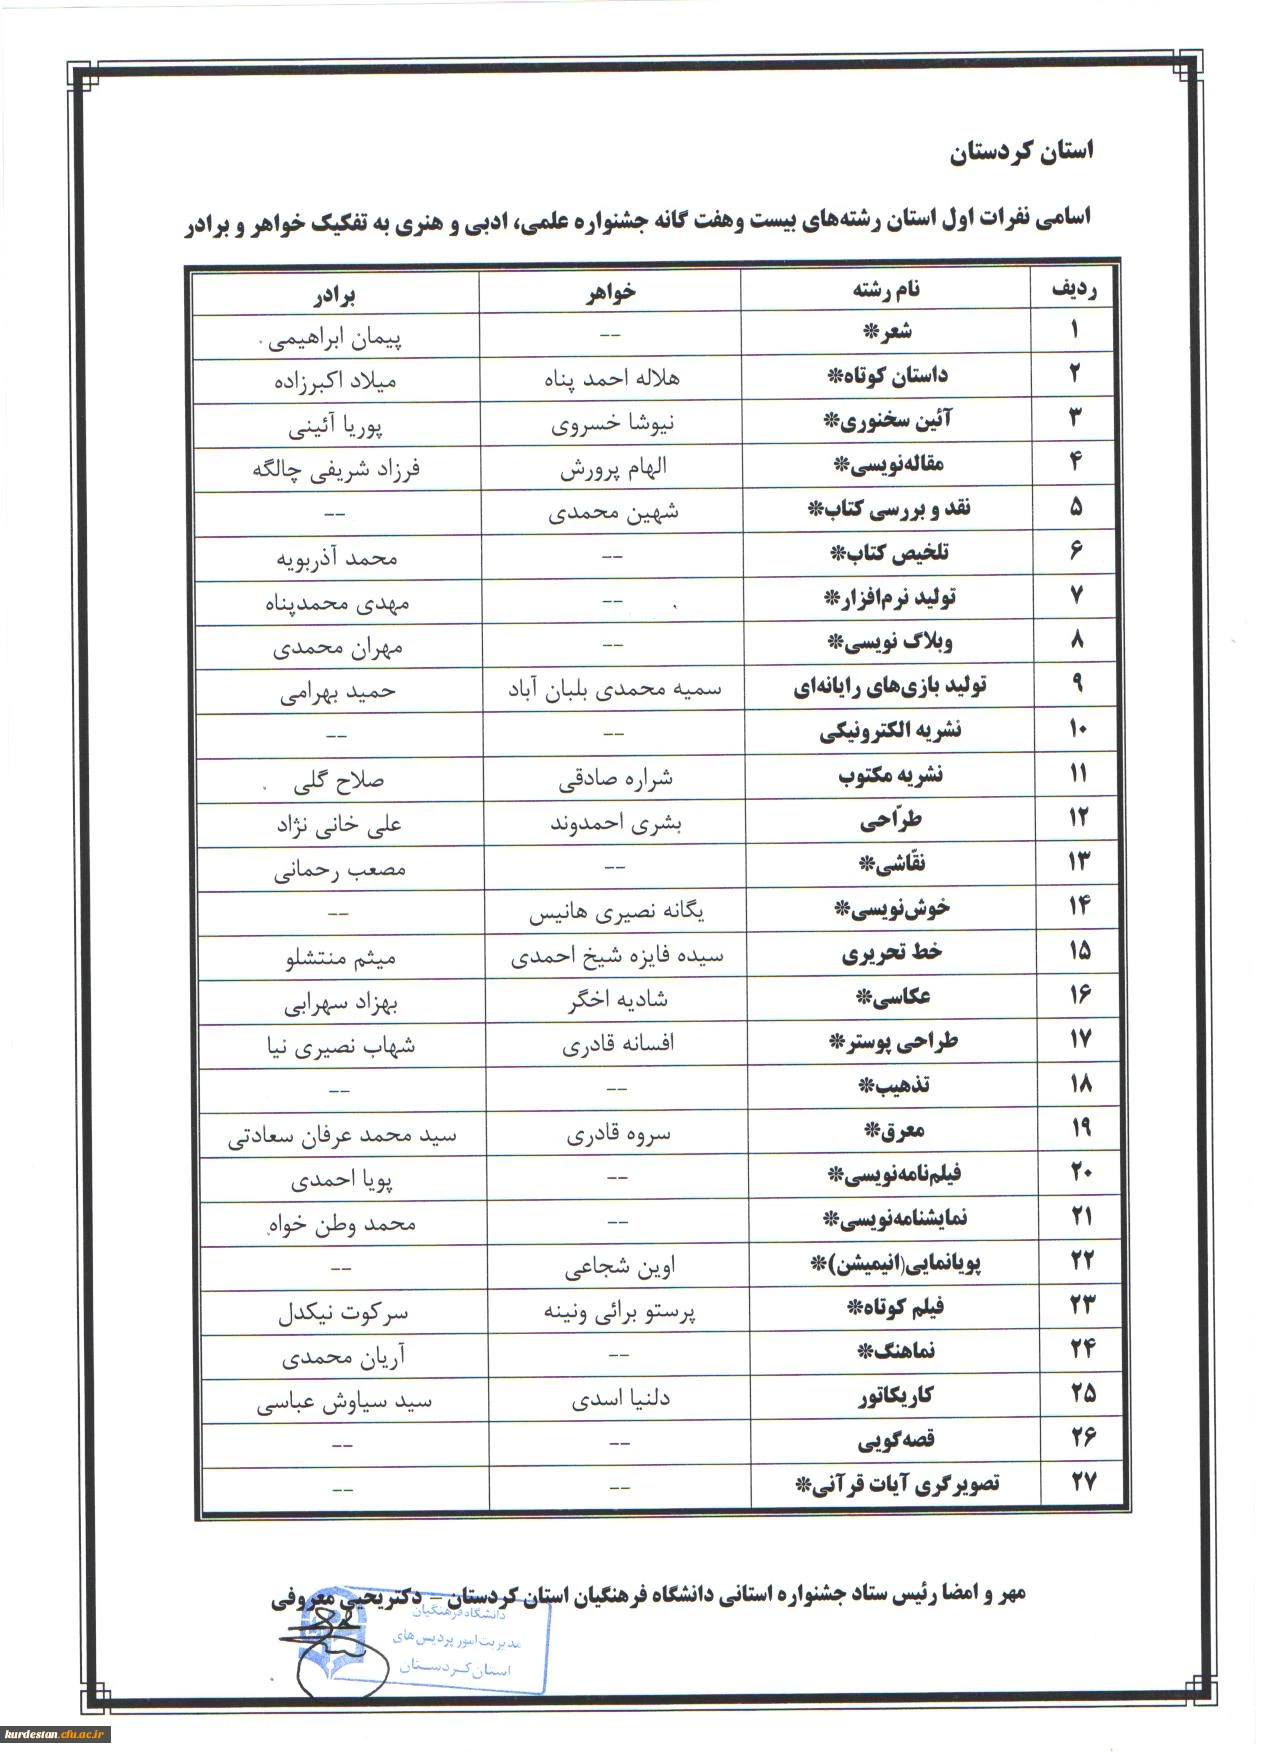 استان کردستان
اسامی نفرات اول استان رشته‌های بیست وهفت گانه جشنواره علمی، ادبی و هنری به تفکیک خواهر و برادر
ردیف نام رشته خواهر برادر
۱ شعر* -- پیمان ابراهیمی
۲ داستان کوتاه* هلاله احمد پناه میلاد اکبرزاده
۳ آئین سخنوری* نیوشا خسروی پوریا آئینی
۴ مقاله‌نویسی* الهام پرورش فرزاد شریفی چالگه
۵ نقد و بررسی کتاب* شهین محمدی --
۶ تلخیص کتاب* -- محمد آذربویه
۷ تولید نرم‌افزار* -- مهدی محمدپناه
۸ وبلاگ نویسی* -- مهران محمدی
۹ تولید بازی‌های رایانه‌ای سمیه محمدی بلبان آباد حمید بهرامی
۱۰ نشریه الکترونیکی -- --
۱۱ نشریه مکتوب شراره صادقی صلاح گلی
۱۲ طرّاحی بشری احمدوند علی خانی نژاد
۱۳ نقّاشی* -- مصعب رحمانی
۱۴ خوش‌نویسی* یگانه نصیری هانیس --
۱۵ خط تحریری سیده فایزه شیخ احمدی میثم منتشلو
۱۶ عکاسی* شادیه اخگر بهزاد سهرابی
۱۷ طراحی پوستر* افسانه قادری شهاب نصیری نیا
۱۸ تذهیب* -- --
۱۹ معرق* سروه قادری سید محمد عرفان سعادتی
۲۰ فیلم‌نامه‌نویسی* -- پویا احمدی
۲۱ نمایشنامه‌نویسی* -- محمد وطن خواه
۲۲ پویانمایی(انیمیشن)* اوین شجاعی --
۲۳ فیلم کوتاه* پرستو برائی ونینه سرکوت نیکدل
۲۴ نماهنگ* -- آریان محمدی
۲۵ کاریکاتور دلنیا اسدی سید سیاوش عباسی
۲۶ قصه‌گویی -- --
۲۷ تصویرگری آیات قرآنی* -- --
مهر و امضا رئیس ستاد جشنواره استانی دانشگاه فرهنگیان استان کردستان – دکتریحیی معروفی
دانشگاه فرهنگیان
مدیریت امور پردیس های
استان کردستان
kurdestan.cfu.ac.ir